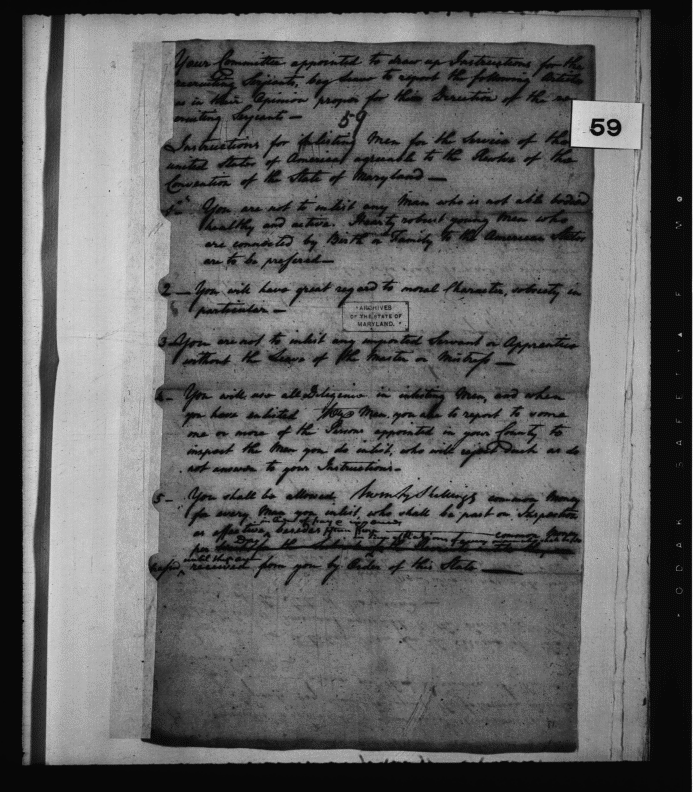 Your Committee appointed to draw up Instructions for the
recruiting Serjeants, beg leave to report the following Articles
as in their Opinion proper for the Direction of the re-
cruiting Serjeants —
59
59
Instructions for inlisting Men for the Service of the
united States of America agreeable to the Resolve of the
Convention of the State of Maryland —
You are not to inlist any Man who is not able bodied
healthy and active. Hearty robust young Men who
are connected by Birth or Family to the American States
are to be preferred —
2 — You will have great regard to moral Character, sobriety in
particular —
ARCHIVES
OF THE STATE OF
MARYLAND.
3 You are not to inlist any imported Servant or Apprentice
without the Leave of the Master or Mistress —
4 - You will use all Diligence in inlisting Men, and when
you have enlisted Men, you are to report to some
one or more of the Persons appointed in your County to
inspect the Men you do inlist, who will reject such as do
not answer to your Instructions -
5 - You shall be allowed Twenty Shillings common Money
for every Man you inlist, who shall be past on Inspection
as effective, besides
until they are
received from you by Order of this State —
KODAK SAFETY FILM